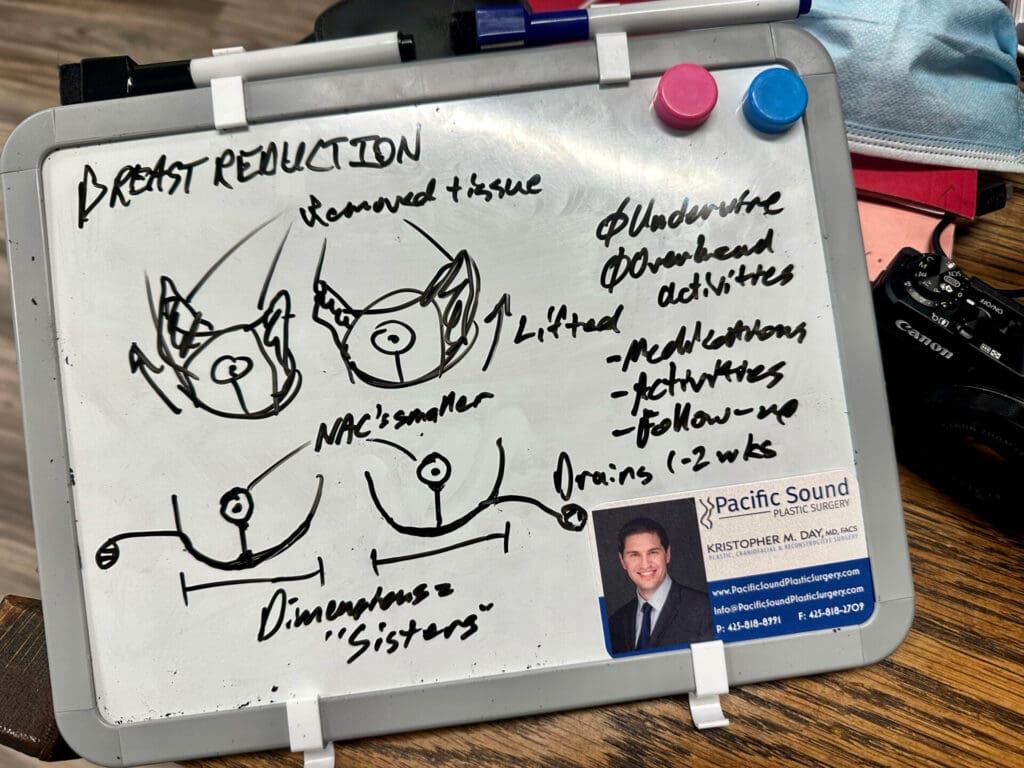 BREAST REDUCTION
Removed tissue
ØUnderwire
ØOverhead
activities
Lifted
-Medications
-Activities
-Follow-up
NAC's smaller
Drains 1-2 wks
Dimensions =
"Sisters"
Pacific Sound
PLASTIC SURGERY
KRISTOPHER M. DAY, MD, FACS
PLASTIC, CRANIOFACIAL & RECONSTRUCTIVE SURGERY
www.PacificSoundPlasticSurgery.com
Info@PacificSoundPlasticSurgery.com
P: 425-818-8991 F: 425-818-2709
Canon
ON/OFF